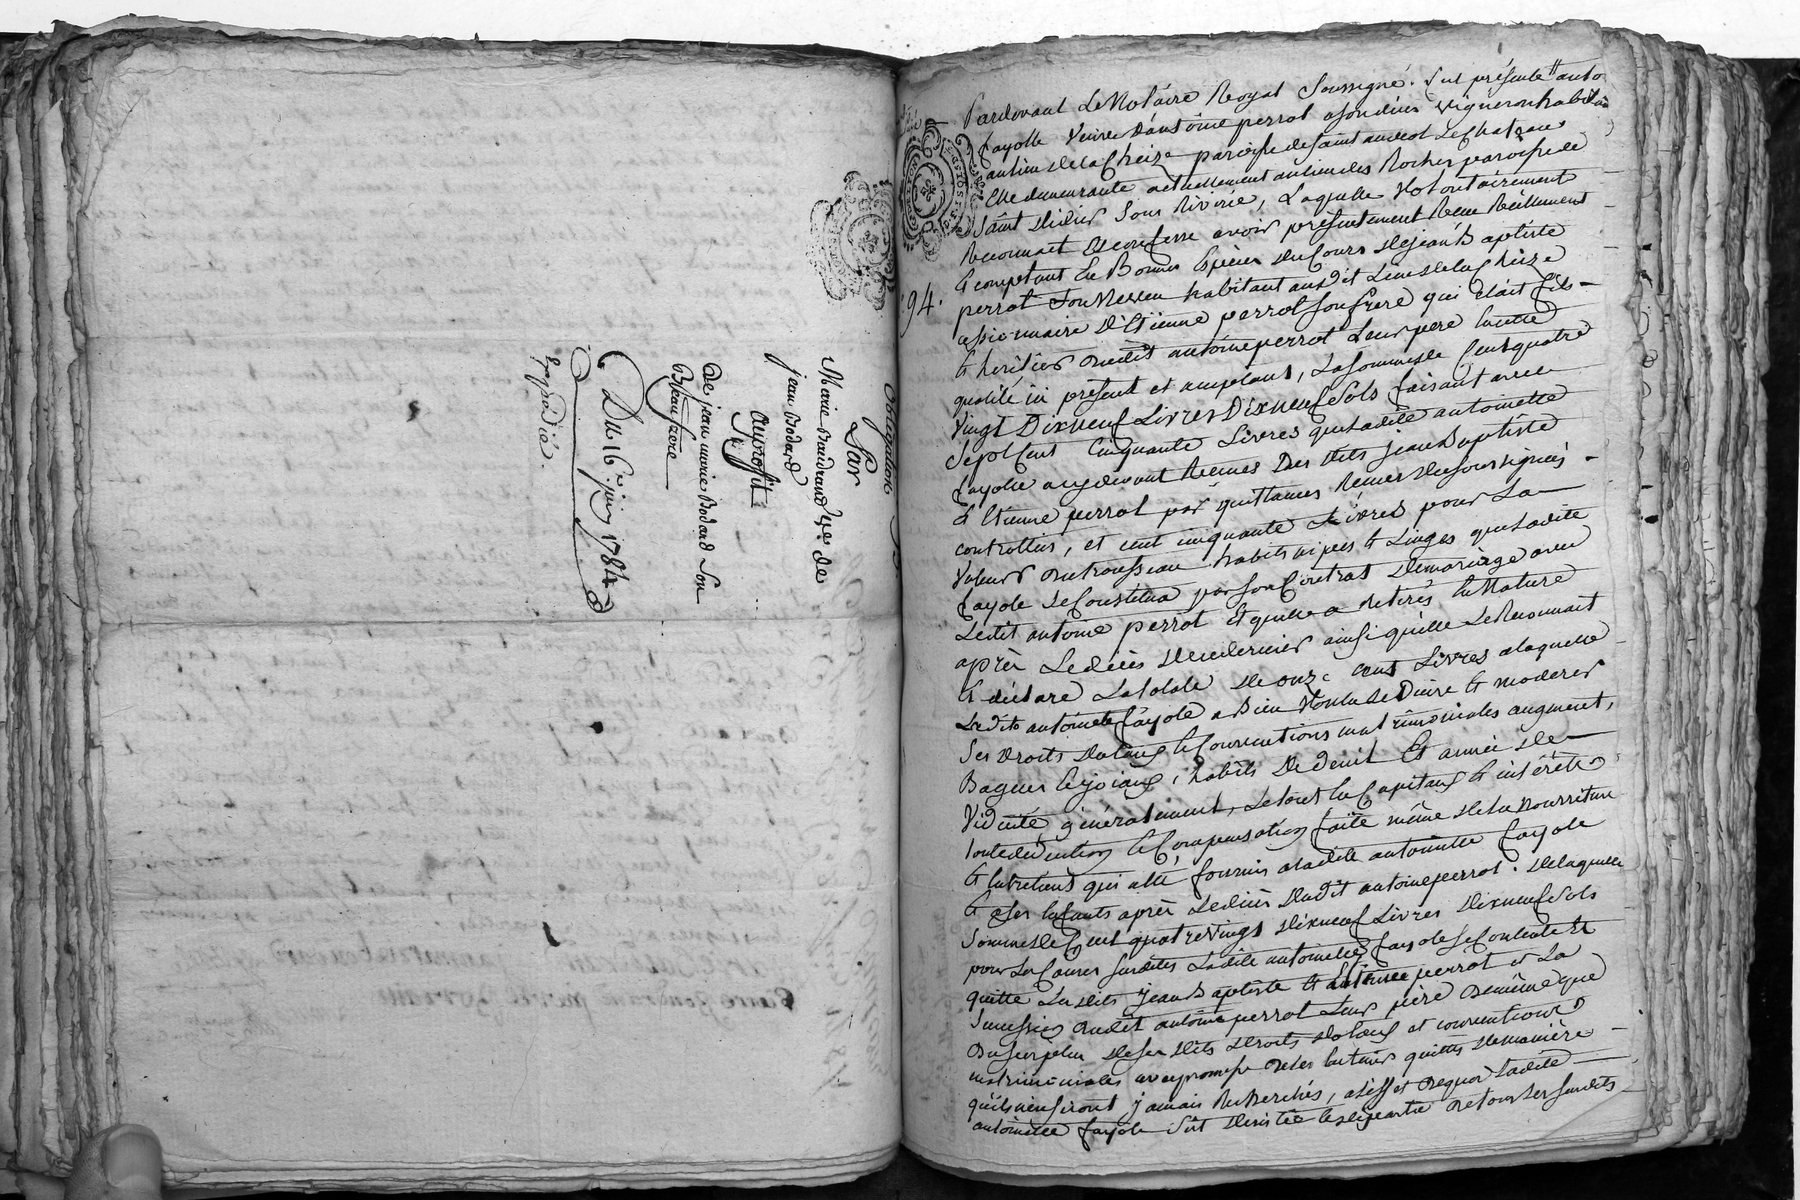 Obligation
Par
Marie Baudrand Vve de
jean Bodard
au proffit
De jean marie Bodard Son
Beaufrere
Du 16e. juin 1784
Expedié.
94.
Pardevant Le Notaire Royal Soussigné. fut présente anto
fayolle Veuve d'antoine perrot a son décès vigneron habitan
au lieu de la Cheize paroisse de saint andeol Le Chateau
Elle demeurante actuellement au lieu des Rocher paroisse de
Saint didier Sous Riverie, Laquelle Volontairement
Reconnait et confesse avoir présentement Receu Réellement
et comptant En Bonnes Espèces du Cours de jean Baptiste
perrot Son Neveu habitant audit Lieu de la Cheize
cessionnaire d'Etienne perrot Son frere qui était fils
et héritier dudit antoine perrot Leur pere en cette
qualité ici présent et acceptant, La somme de Cent quatre
Vingt Dixneuf Livres Dixneuf Sols faisant avec
Sept Cent Cinquante Livres que Ladite antoinette
fayolle a cy devant Receues Des dits jean Baptiste
et Etienne perrot par quittances Receues du soussigné
controllées, et cent cinquante Livres pour La
Valeur du trousseau habits nipes et Linges que Ladite
fayole Se Constitua par Son Contrat de mariage avec
Ledit antoine perrot Et quelle a Retirés En Nature
après Le décès de ce dernier ainsi qu'elle Le Reconnait
et déclare La totale de onze cent Livres a laquelle
La dite antoinette fayole a Bien Voulu Reduire et moderer
Ses Droits dotaux et Conventions matrimoniales augment,
Bagues et joiaux, habits De deuil Et année de
Viduité généralement, Le tout En Capitaux et intérêts
toute déduction et Compensation faite même de la Nourriture
et Entretient qui a été fournis a ladite antoinette fayole
et a ses Enfants après Le décès dudit antoine perrot. De laquelle
Somme de Cent quatre Vingt dixneuf Livres dixneuf Sols
pour Les Causes Susdites Ladite antoinette fayole Se Contente Et
quitte Les dits jean Baptiste et Etienne perrot et La
Succession dudit antoine perrot Leur père De même que
Du Surplus de Ses dits droits dotaux et conventions
matrimoniales avec promesse de les En tenir quittes de manière
qu'ils n'en Seront jamais Recherchés, a l'effet De quoi Ladite
antoinette fayole S'est désistée et départie de tous Ses susdits